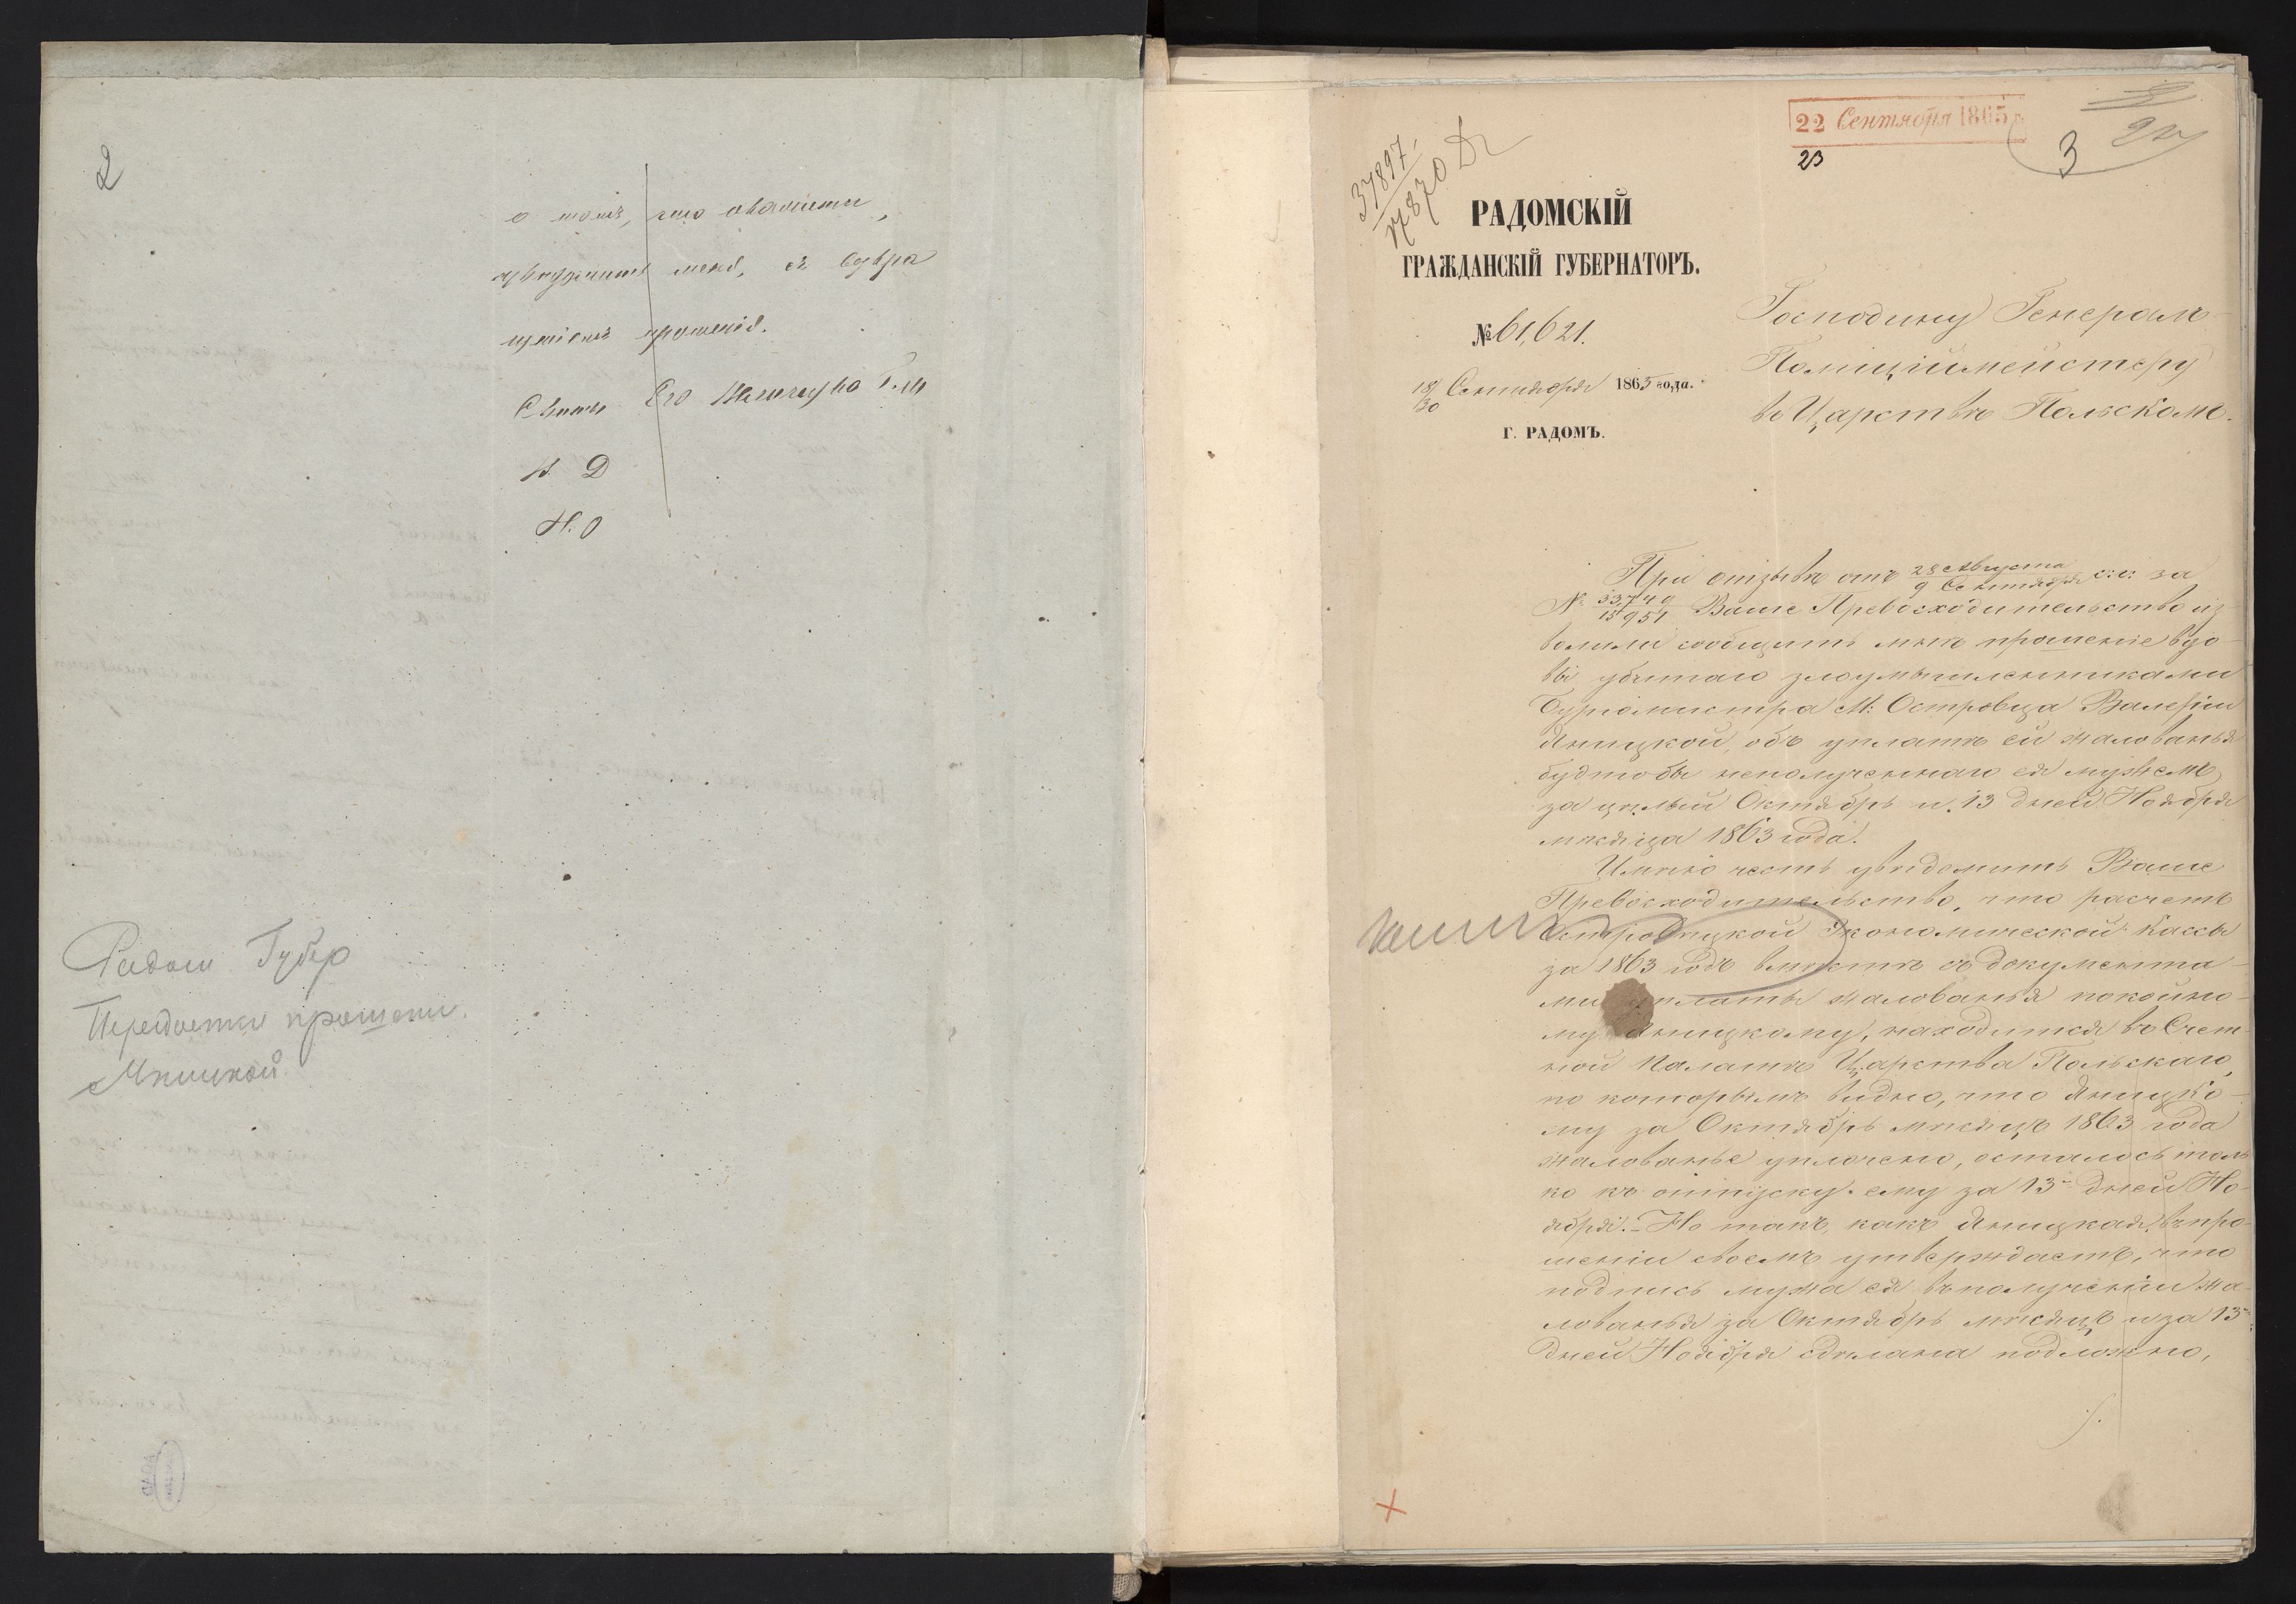 2
о томъ, что
увѣдомить меня, съ возвра
щеніемъ прошенія.
Его
Н. О
Радом Губер
прошени
Яницкой
22 Сентября 1865 г.
23
3
37897
17870
РАДОМСКІЙ
ГРАЖДАНСКІЙ ГУБЕРНАТОРЪ.
№ 61,621.
18/30 Сентября 1865 года.
Г. РАДОМЪ.
Господину Генералъ-
Полиціймейстеру
въ Царствѣ Польскомъ.
При отзывѣ отъ 28 Августа/9 Сентября с: г: за
№ 33740/15951 Ваше Превосходительство из-
волили сообщить мнѣ прошеніе вдо-
вы убитаго злоумышленниками
Бургомистра М: Островца Валеріи
Яницкой, объ уплатѣ ей жалованья
будтобы неполученнаго ея мужемъ,
за цѣлый Октябрь и 13 дней Ноября
мѣсяца 1863 года.
Имѣю честь увѣдомить Ваше
Превосходительство, что расчетъ
Островецкой Экономической Кассы
за 1863 годъ вмѣстѣ съ документа-
ми уплаты жалованья покойно-
му Яницкому, находится въ Счет-
ной Палатѣ Царства Польскаго,
по которымъ видно, что Яницко-
му за Октябрь мѣсяцъ 1863 года
жалованье уплочено, осталось толь-
ко къ отпуску ему за 13 дней Но-
ября. Но такъ, какъ Яницкая въ про-
шеніи своемъ утверждаетъ, что
подпись мужа ея въ полученіи жа-
лованья за Октябрь мѣсяцъ и за 13
дней Ноября сдѣлана подложно,